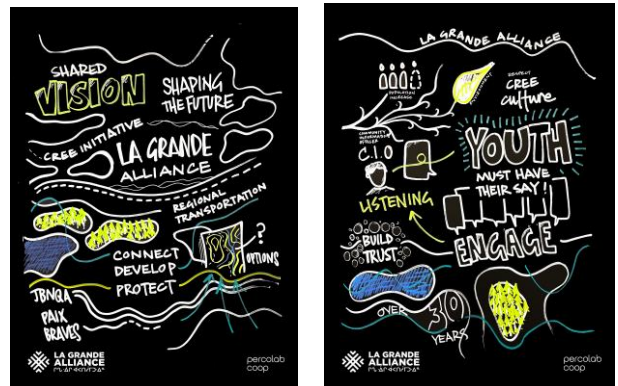 SHARED
VISION
SHAPING
THE FUTURE
CREE INITIATIVE
LA GRANDE
ALLIANCE
REGIONAL
TRANSPORTATION
?
OPTIONS
CONNECT
DEVELOP
PROTECT
JBNQA
PAIX
BRAVES
LA GRANDE
ALLIANCE
percolab
coop
LA GRANDE ALLIANCE
POPULATION
INCREASE
RESPECT
CREE
culture
COMMUNITY
INFORMATION
OFFICER
C.I.O
YOUTH
MUST HAVE
THEIR SAY!
LISTENING
BUILD
TRUST
ENGAGE
OVER
30
YEARS
LA GRANDE
ALLIANCE
percolab
coop